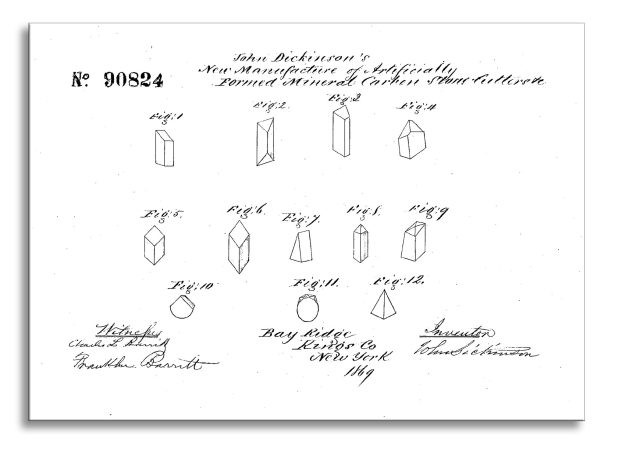 John Dickinson's
New Manufacture of Artificially
Formed Mineral Carbon Stone Cutters &c
No. 90824
Fig: 1
Fig: 2.
Fig: 3
Fig: 4
Fig: 5.
Fig: 6.
Fig: 7.
Fig: 8.
Fig: 9
Fig: 10
Fig: 11.
Fig: 12.
Witnesses
Charles L. Barritt
Franklin Barritt
Bay Ridge
Kings Co
New York
1869
Inventor
John Dickinson